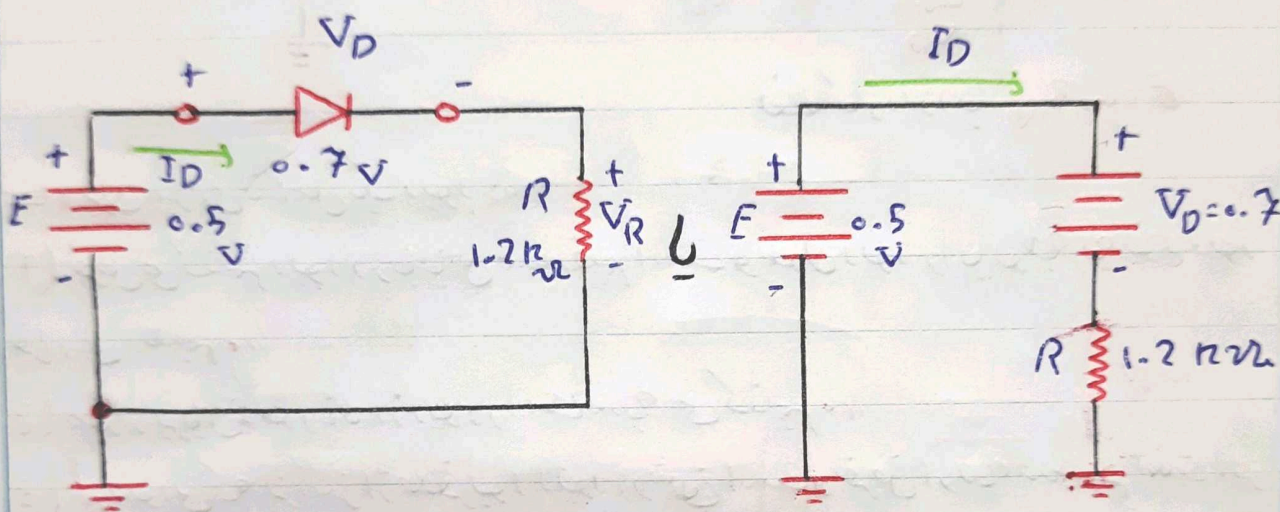 VD
+ -
ID
0.7 V
+
E
0.5
V
-
R
1.2kΩ
+
VR
-
ID
+
E
0.5
V
-
+
VD=0.7
-
R 1.2 kΩ